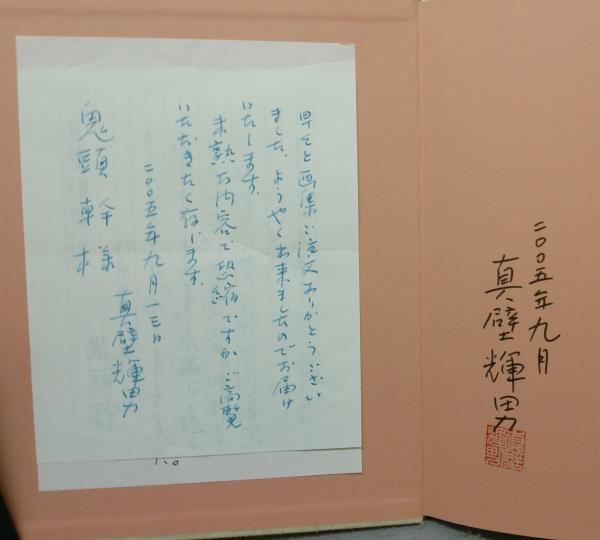 早々と画集ご注文ありがとうござい
ました。ようやく出来ましたのでお届け
いたします。
未熟な内容で恐縮ですがご高覧
いただきたく存じます。
二〇〇五年九月一三日
真壁輝男
鬼頭
様
二〇〇五年九月
真壁輝男